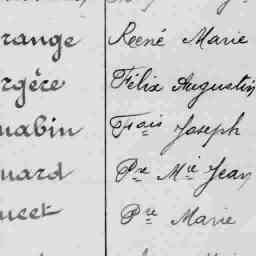 range René Marie
rgère Félix Augustin
mabin Fois Joseph
uard Pre Mie Jean
ucet Pre Marie